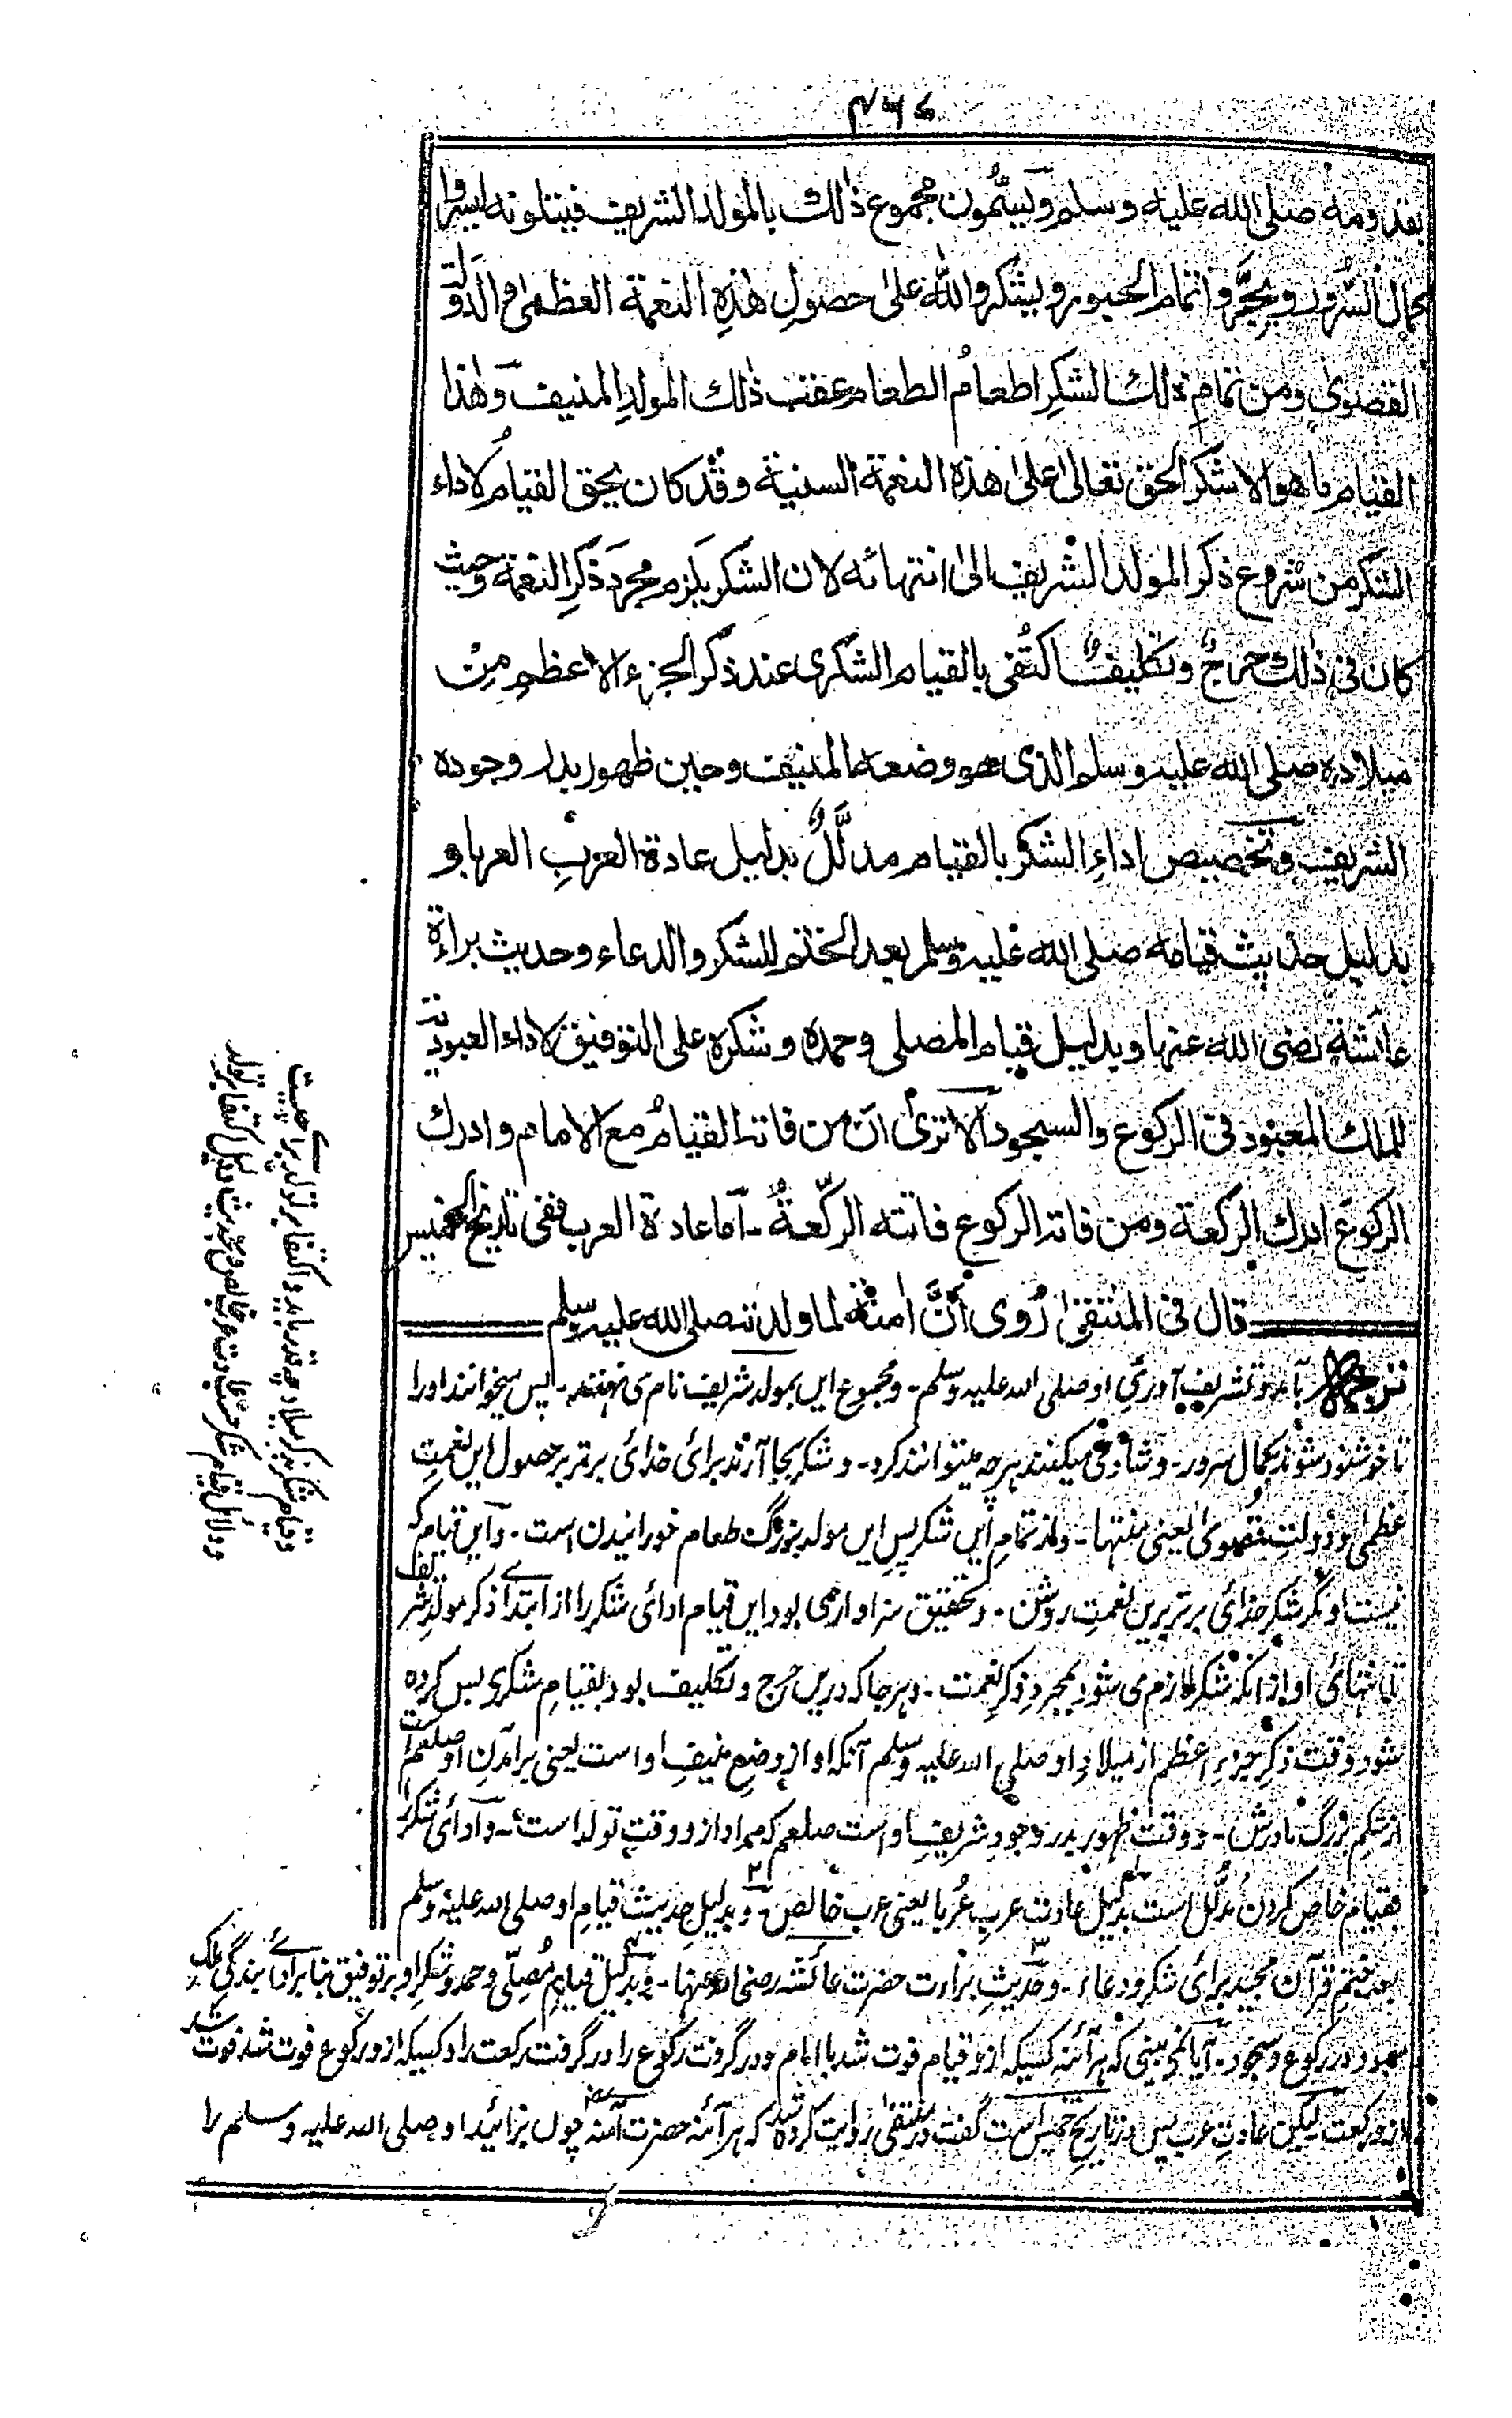 بقدومه صلى الله عليه وسلم ويسمّون مجموع ذلك بالمولد الشريف فيتلونه ليسروا
كمال السرور ويحبروا تمام الحبور ويشكروا الله على حصولِ هذهِ النعمة العظمى والدولة
القصوى ومن تمام ذلك الشكرِ اطعامُ الطعام عقب ذلك المولدِ المنيف وهذا
القيام ما هو الا شكر الحق تعالى على هذه النعمة السنية وقد كان يحق القيامُ لاداء
الشكر من شروع ذكر المولد الشريف الى انتهائه لان الشكر يلزم مجردَ ذكرِ النعمة وحيث
كان فى ذلك حرجٌ وتكليفٌ اكتُفى بالقيام الشكرى عند ذكر الجزء الاعظم مِنْ
ميلاده صلى الله عليه وسلم الذى هو وضعه المنيف وحين ظهور بدر وجوده
الشريف وتخصيص اداءِ الشكر بالقيام مدلَّلٌ بدليل عادة العربِ العربا و
بدليل حديث قيامه صلى الله عليه وسلم بعد الختم للشكر والدعاء وحديث براءة
عائشة رضى الله عنها وبدليل قيام المصلى وحمده وشكره على التوفيق لاداء العبودية
للملك المعبود فى الركوع والسجود آلا ترى ان من فاته القيامُ مع الامام وادرك
الركوع ادرك الركعة ومن فاته الركوع فاتته الركعةُ ـ آما عادة العرب ففى تاريخ الخميس
قال فى المنتقى رُوى أنَّ امنة لما ولدته صلى الله عليه وسلم
ترجمه بآمد و تشريف آورئ او صلى الله عليه وسلم ـ ومجموع ايں بمولد شريف نام مى نهند ـ پس ميخوانند اورا
تا خوشنود شوند بكمال سرور ـ وشادى ميكنند هرچه ميتوانند كرد ـ و شكر بجا آرند براى خداى برتر بر حصول ايں نعمتِ
عظمى ودولتِ قصوى يعنى منتها ـ واز تمامِ ايں شكر پسِ ايں مولد بزرگ طعام خورانيدن است ـ وآيں قيام كه
نيست او مگر شكر خداى برتر بريں نعمت روشن ـ وتحقيق سزاوار مى بود ايں قيام اداى شكر را از ابتداے ذكر مولد شريف
تا انتهاى او از آنكه شكر لازم مى شود بمجردِ ذكرِ نعمت ـ و هر جا كه دريں حرج و تكليف بود بقيامِ شكرى بس كرده
شود وقت ذكرِ جزءِ اعظم از ميلادِ او صلى الله عليه وسلم آنكه او از وضعِ منيفِ او است يعنى برآمدنِ او صلعم است
از شكمِ بزرگ مادرش ـ و وقت ظهور بدر وجودِ شريفِ او است صلعم كه مراد از و وقت تولد است ـ وآداى شكر را
بقيام خاص كردن مدلل است بدليل عادت عربِ عَربا يعنى عربِ خالص ـ و بدليلِ حديث قيامِ او صلى الله عليه وسلم
بعد ختمِ قرآن مجيد براى شكر و دعاء ـ وحديثِ براءت حضرت عائشه رضى الله عنها ـ و بدليل قيامِ مُصلّى وحمد و شكرِ او بر توفيق بنا بر اداے بندگى ملك
معبود در ركوع و سجود ـ آيا نمى بينى كه هر آئنه كسيكه از و قيام فوت شد با امام و در گرفت ركوع را در گرفت ركعت را و كسيكه از و ركوع فوت شد فوت شد
از و ركعت ليكن عادتِ عرب پس در تاريخ خميس است گفت در منتقى روايت كرده شد كه هر آئنه حضرت آمنه چوں بزائيد او صلى الله عليه وسلم را